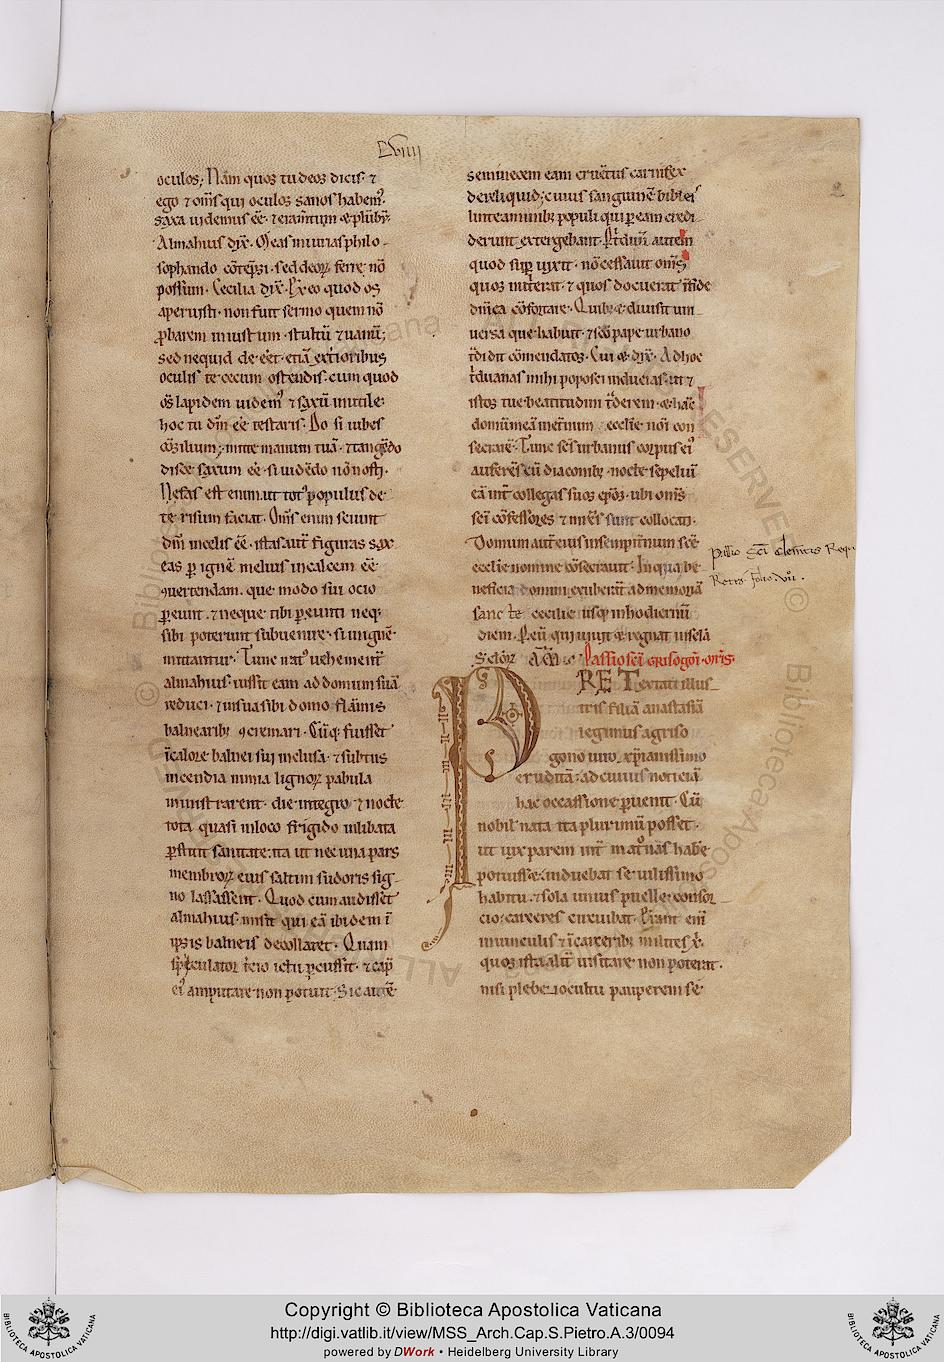 LVIIII
oculos; Nam quos tu deos dicis · ⁊
ego ⁊ om̅s qui oculos sanos habem᷒·
saxa uidemus ee̅ · ⁊ eram̅tum
Almahius dix̅ · Meas iniurias philo-
sophando co̅te̅psi · sed deoꝝ ferre no̅
possum · Cecilia dix̅ · Ex eo quod os
aperuisti · non fuit sermo quem no̅
ꝓbarem iniustum · stultu̅ ⁊ uanu̅;
sed nequid de ee̅t · etia̅ ext̅ioribus
oculis te cecum ostendis · cum quod
om̅s lapidem uidem᷒ ⁊ saxu̅ inutile·
hoc tu dm̅ ee̅ testaris · Do si iubes
co̅silium; mitte manum tua̅ · ⁊ tange̅do
disce saxum ee̅ · si uide̅do no̅ nosti ·
Nefas est enim · ut tot᷒ populus de
te risum faciat · Om̅s enim sciunt
dm̅ in celis ee̅ · istas aut̅ figuras sax
eas ꝑ igne̅ melius in calcem ee̅
ꝯuertendam · que modo sui ocio
ꝑeunt · ⁊ neque tibi ꝑeunti neq;
sibi poterunt subuenire · si in igne̅
mittantur · Tunc uehement̅
almahius · iussit eam ad domum sua̅
reduci · ⁊ in sua sibi domo fla̅mis
balnearib; ꝯcremari · Cu̅q; fuisset
i̅ calore balnei sui inclusa · ⁊ subtus
incendia nimia lignoꝝ pabula
ministrarent · die integro ⁊ nocte
tota quasi in loco frigido inlibata
ꝑstitit sanitate · ita ut nec una pars
membroꝝ eius saltim sudoris sig-
no lassassent · Quod cum audisset
almahius · misit qui ea̅ ibidem i̅
ipsis balneis decollaret · Quam
speculator t̅cio ictu ꝑcussit · ⁊ cap̅
ei᷒ amputare non potuit · Sic aute̅
seminecem eam cruentus carnifex
dereliquid; cuius sanguine̅ bibleis
linteaminib; populi qui ꝑ eam credi-
derunt extergebant · P̱ t̅duu̅ autem
quod sup̱ uixit · no̅ cessauit om̅s
quos nut̅ierat · ⁊ quos docuerat in fide
dn̅ica co̅fortare · Quib; ⁊ diuisit uni-
uersa que habuit · ⁊ sc̅o pape urbano
t̅didit co̅mendatos · Cui ⁊ dix̅ · Ad hoc
t̅duanas mihi poposci inducias · ut ⁊
istos tue beatitudini t̅derem · ⁊ hanc
domu̅ mea̅ in et̅num ecclie̅ no̅i con
secrare̅ · Tunc sc̅s urbanus corpus ei᷒
aufere̅s cu̅ diaconib; nocte sepeliuit
ea̅ int̅ collegas suos ep̅os · ubi om̅s
sc̅i co̅fessores ⁊ mr̅es sunt collocati ·
Domum aut̅ eius in sempit̅num sc̅e
ecclie̅ nomine co̅secrauit · In qua be-
neficia domini exuberant ad memoria̅
sancte cecilie usq; in hodiernu̅
diem · P̱ eu̅ qui uiuit ⁊ regnat in scl̅a
scl̅oꝝ AM̅ · Passio sc̅i Grisogoni · mr̅is·
PRETextati illus-
tris filia̅ anastasia̅
legimus a griso
gono uiro xp̅ianissimo
erudita̅ : ad cuius noticia̅
hac occassione ꝑuenit · Cu̅
nobil᷒ nata ita plurimu̅ posset ·
ut uix parem int̅ mat̅nas habe̅
potuisset · induebat se uilissimo
habitu · ⁊ sola unius puelle consor-
cio · carceres circuibat · Erant eni̅
in uinculis ⁊ i̅ carcerib; milites x̅ ·
quos ista alit̅ uisitare non poterat ·
nisi plebeio cultu pauperem se
Pallio Sci Clementis Requir
Retro folio VII.
© Biblioteca Apostolica Vaticana
ALL RIGHTS RESERVED
BIBLIOTECA APOSTOLICA VATICANA
Copyright © Biblioteca Apostolica Vaticana
http://digi.vatlib.it/view/MSS_Arch.Cap.S.Pietro.A.3/0094
powered by DWork • Heidelberg University Library
BIBLIOTECA APOSTOLICA VATICANA